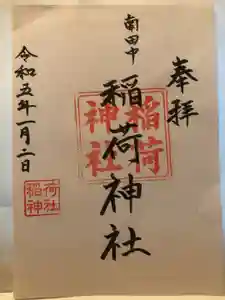 奉拝
南田中
稲荷神社
稲荷神社
令和五年一月二日
稲荷神社